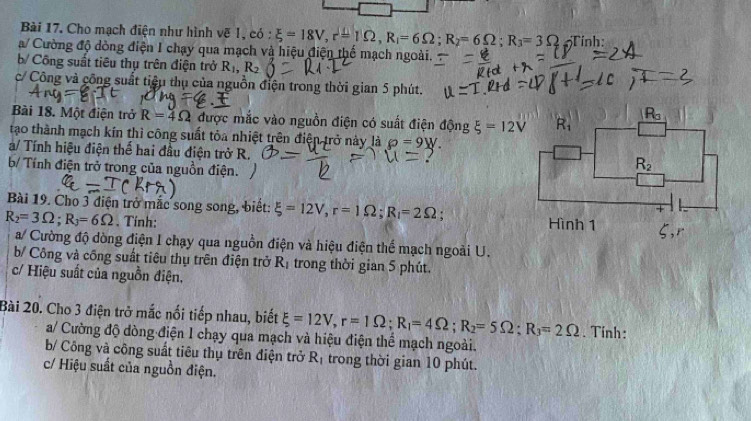 Bài 17. Cho mạch điện như hình vẽ 1, có : ξ = 18V, r = 1 Ω, R₁ = 6 Ω ; R₂ = 6 Ω ; R₃ = 3 Ω. Tính:
a/ Cường độ dòng điện I chạy qua mạch và hiệu điện thế mạch ngoài.
b/ Công suất tiêu thụ trên điện trở R₁, R₂
c/ Công và công suất tiêu thụ của nguồn điện trong thời gian 5 phút.
Bài 18. Một điện trở R = 4 Ω được mắc vào nguồn điện có suất điện động ξ = 12V
tạo thành mạch kín thì công suất tỏa nhiệt trên điện trở này là ℘ = 9W.
a/ Tính hiệu điện thế hai đầu điện trở R.
b/ Tính điện trở trong của nguồn điện.
Bài 19. Cho 3 điện trở mắc song song, biết: ξ = 12V, r = 1 Ω ; R₁ = 2 Ω ;
R₂ = 3 Ω ; R₃ = 6 Ω . Tính:
a/ Cường độ dòng điện I chạy qua nguồn điện và hiệu điện thế mạch ngoài U.
b/ Công và công suất tiêu thụ trên điện trở R₁ trong thời gian 5 phút.
c/ Hiệu suất của nguồn điện.
Bài 20. Cho 3 điện trở mắc nối tiếp nhau, biết ξ = 12V, r = 1 Ω ; R₁ = 4 Ω ; R₂ = 5 Ω ; R₃ = 2 Ω . Tính:
a/ Cường độ dòng điện I chạy qua mạch và hiệu điện thế mạch ngoài.
b/ Công và công suất tiêu thụ trên điện trở R₁ trong thời gian 10 phút.
c/ Hiệu suất của nguồn điện.
R₁
R₃
R₂
+ -
Hình 1
ξ, r
= 2A
I = 3